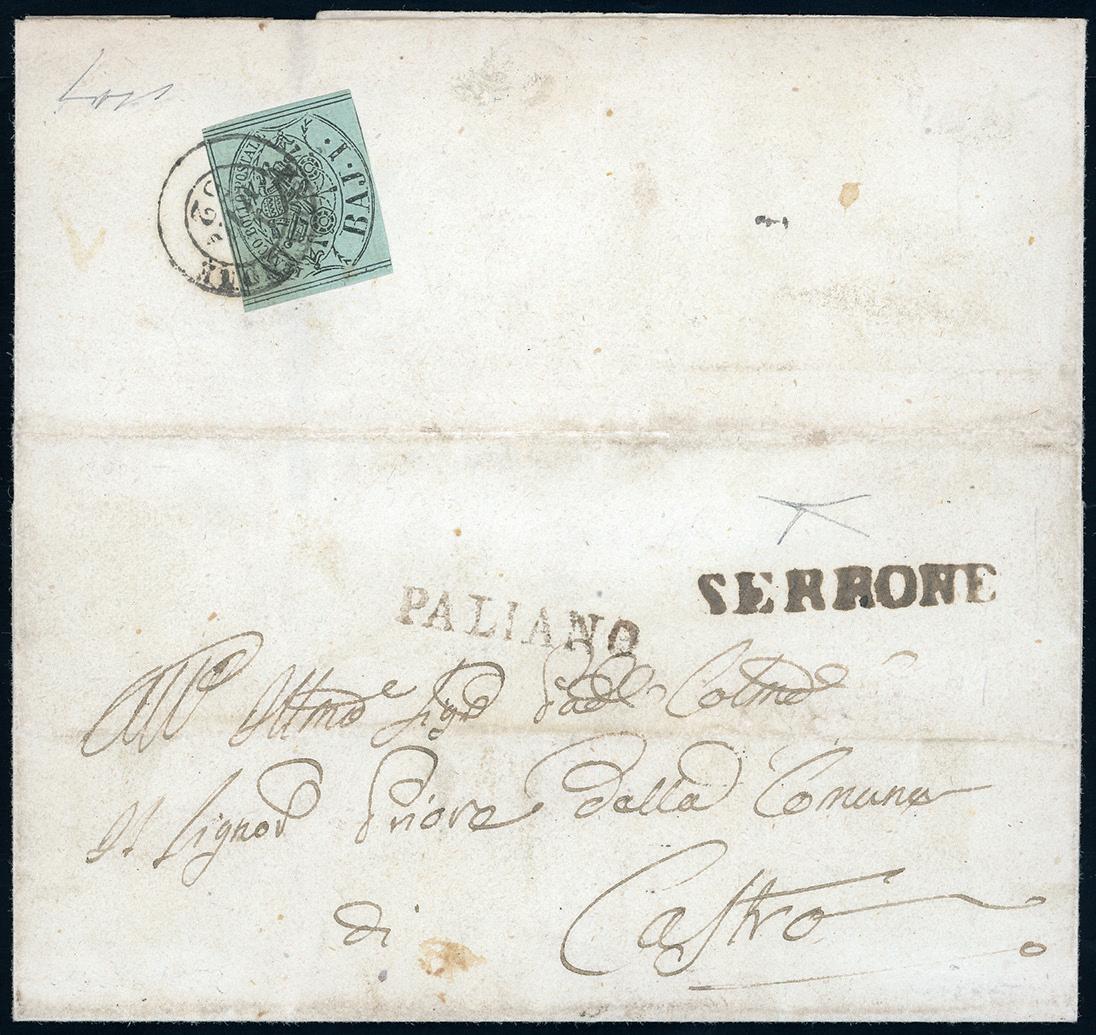 BAJ. 1.
FRANCO BOLLO POSTALE
PALIANO
SERRONE
All' Illmo Sigr Padr Colmo
Il Signor Priore della Comune
di Castro